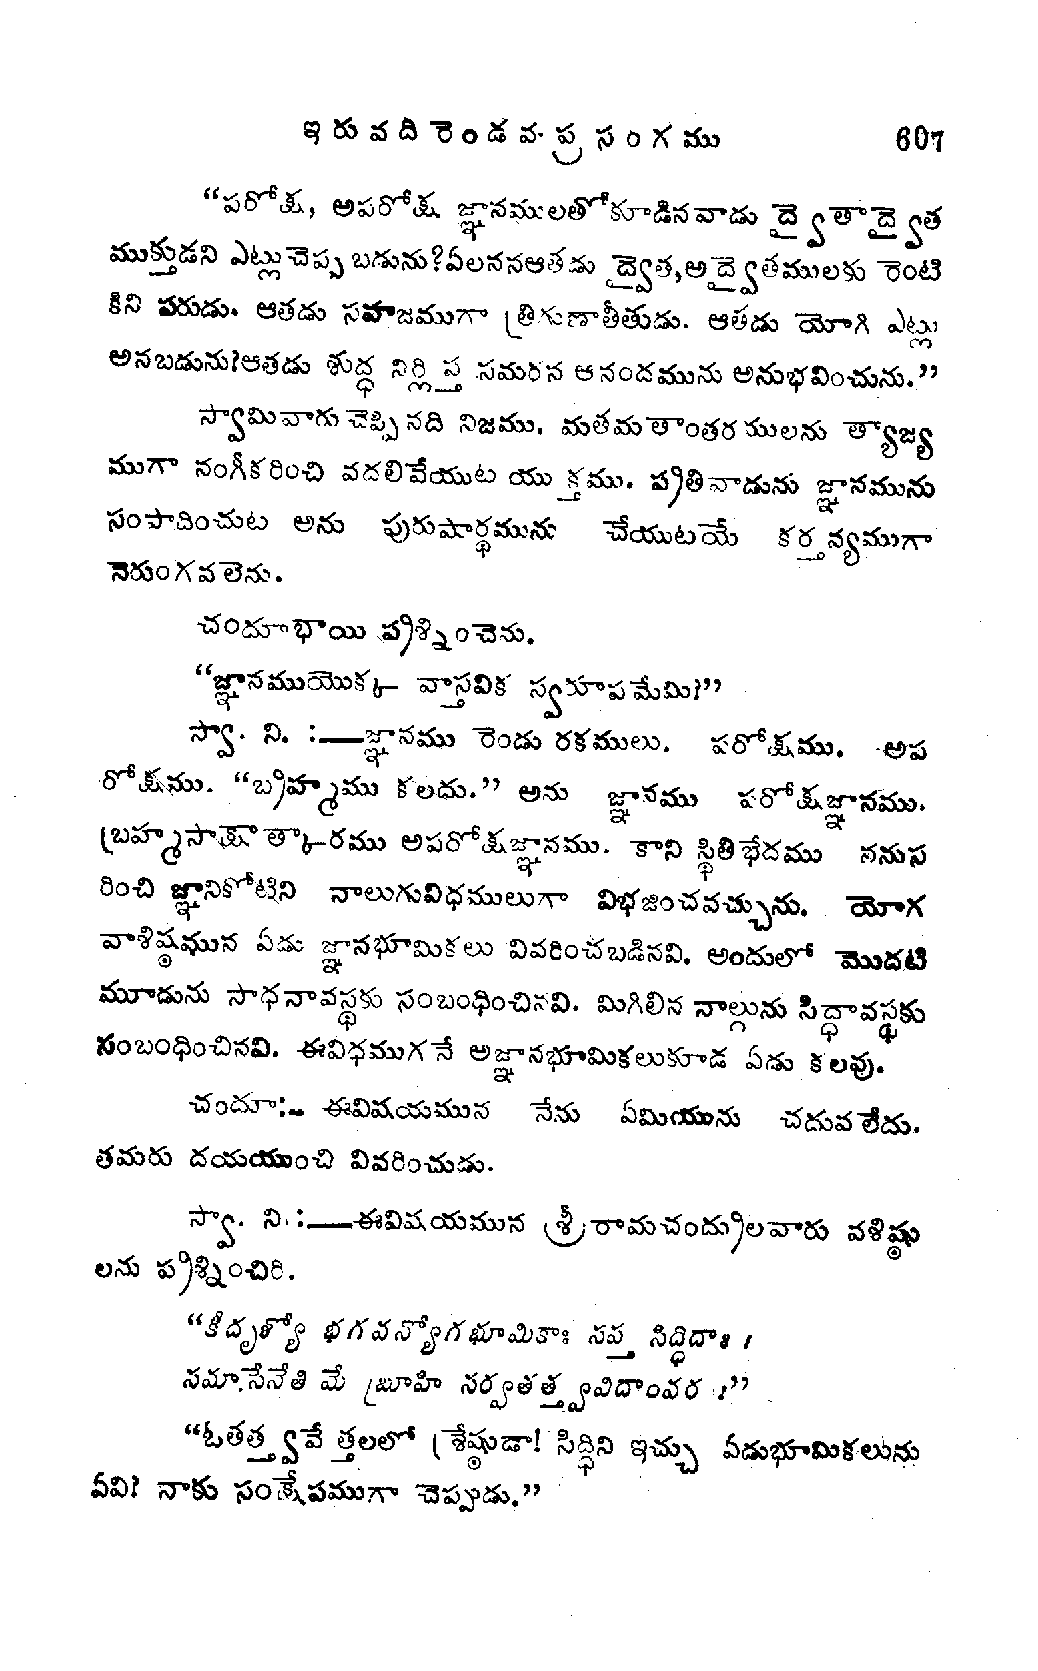 ఇరువదిరెండవ ప్రసంగము 607
“పరోక్ష, అపరోక్ష జ్ఞానములతోకూడినవాడు ద్వైతాద్వైత
ముక్తుడని ఎట్లు చెప్పబడును?ఏలననఆతడు ద్వైత,అద్వైతములకు రెంటి
కిని పరుడు. ఆతడు సహజముగా త్రిగుణాతీతుడు. ఆతడు యోగి ఎట్లు
అనబడును?ఆతడు శుద్ధ నిర్లిప్త సమరస ఆనందమును అనుభవించును.”
స్వామివారు చెప్పినది నిజము. మతమతాంతరములను త్యాజ్య
ముగా నంగీకరించి వదలివేయుట యుక్తము. ప్రతివాడును జ్ఞానమును
సంపాదించుట అను పురుషార్థమును చేయుటయే కర్తవ్యముగా
నెరుంగవలెను.
చందూభాయి ప్రశ్నించెను.
“జ్ఞానముయొక్క వాస్తవిక స్వరూపమేమి?”
స్వా. ని. :—జ్ఞానము రెండు రకములు. పరోక్షము. అప
రోక్షము. “బ్రహ్మము కలదు.” అను జ్ఞానము పరోక్షజ్ఞానము.
బ్రహ్మసాక్షాత్కారము అపరోక్షజ్ఞానము. కాని స్థితిభేదము ననుస
రించి జ్ఞానికోటిని నాలుగువిధములుగా విభజించవచ్చును. యోగ
వాశిష్ఠమున ఏడు జ్ఞానభూమికలు వివరించబడినవి. అందులో మొదటి
మూడును సాధనావస్థకు సంబంధించినవి. మిగిలిన నాల్గును సిద్ధావస్థకు
సంబంధించినవి. ఈవిధముగనే అజ్ఞానభూమికలుకూడ ఏడు కలవు.
చందూ:- ఈవిషయమున నేను ఏమియును చదువలేదు.
తమరు దయయుంచి వివరించుడు.
స్వా. ని. :—ఈవిషయమున శ్రీరామచంద్రులవారు వశిష్ఠు
లను ప్రశ్నించిరి.
“కీదృశ్యో భగవన్యోగభూమికాః సప్త సిద్ధిదాః ।
సమాసేనేతి మే బ్రూహి సర్వతత్త్వవిదాంవర ।”
“ఓతత్త్వవేత్తలలో శ్రేష్ఠుడా! సిద్ధిని ఇచ్చు ఏడుభూమికలును
ఏవి? నాకు సంక్షేపముగా చెప్పుడు.”